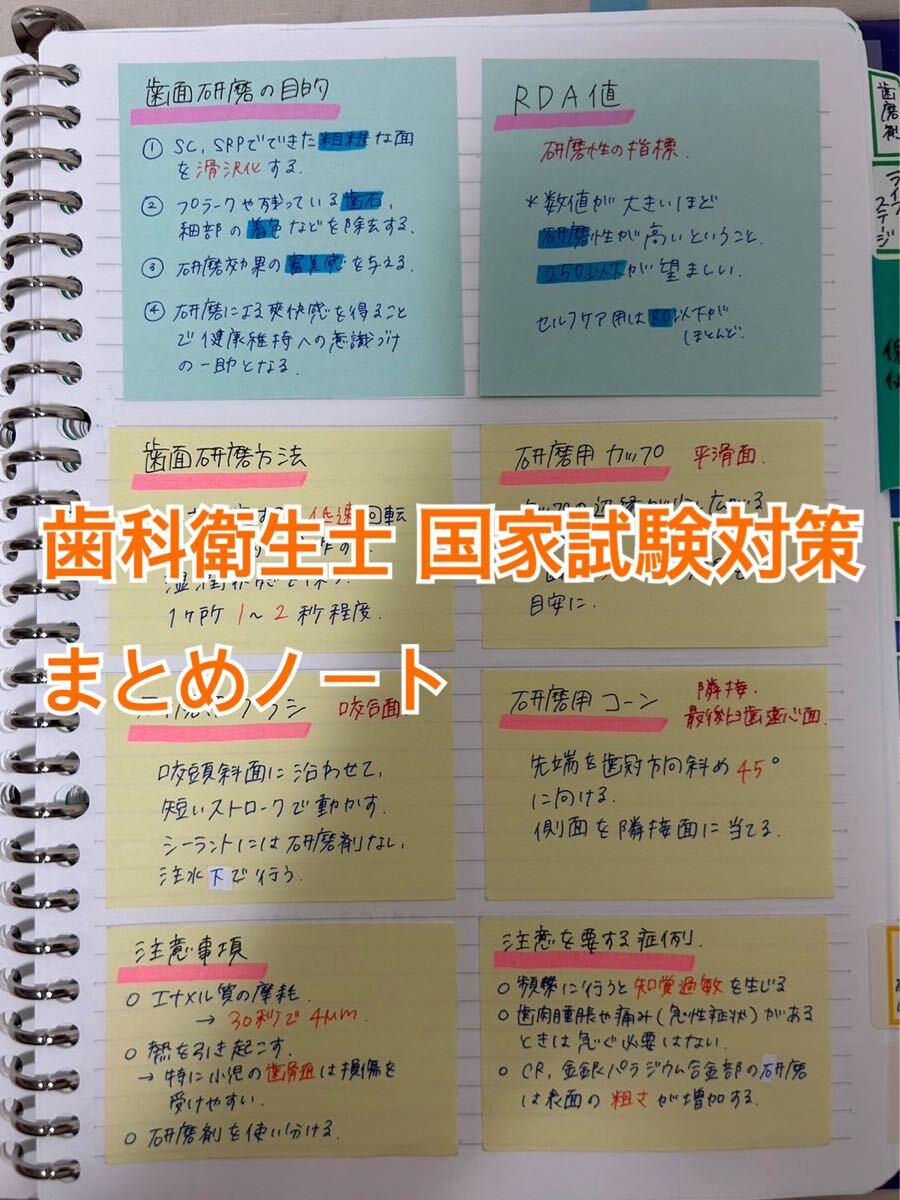 歯面研磨の目的
① SC, SRPでできた粗糙な面
を滑沢化する。
② プラークや残っている歯石、
細部の着色などを除去する。
③ 研磨効果の審美感を与える。
④ 研磨による爽快感を得ること
で健康維持への意識づけ
の一助となる。
RDA値
研磨性の指標.
*数値が大きいほど
研磨性が高いということ。
250以下が望ましい.
セルフケア用は80以下が
ほとんど.
歯面研磨方法
低速回転
1ヶ所 1〜2秒程度.
研磨用カップ 平滑面.
目安に.
歯科衛生士 国家試験対策
まとめノート
ブラシ 咬合面
咬頭斜面に沿わせて、
短いストロークで動かす。
シーラントには研磨剤なし、
注水下で行う.
研磨用コーン 隣接.
最後臼歯遠心面.
先端を歯冠方向斜め45°
に向ける.
側面を隣接面に当てる.
注意事項
○ エナメル質の摩耗.
→ 30秒で4μm.
○ 熱を引き起こす.
→ 特に小児の歯骨迫は損傷を
受けやすい.
○ 研磨剤を使い分ける.
注意を要する症例.
○ 頻繁に行うと知覚過敏を生じる
○ 歯肉腫脹や痛み(急性症状)がある
ときは急ぐ必要はない.
○ CR, 金銀パラジウム合金部の研磨
は表面の粗さが増加する.
歯磨剤
ライフステージ